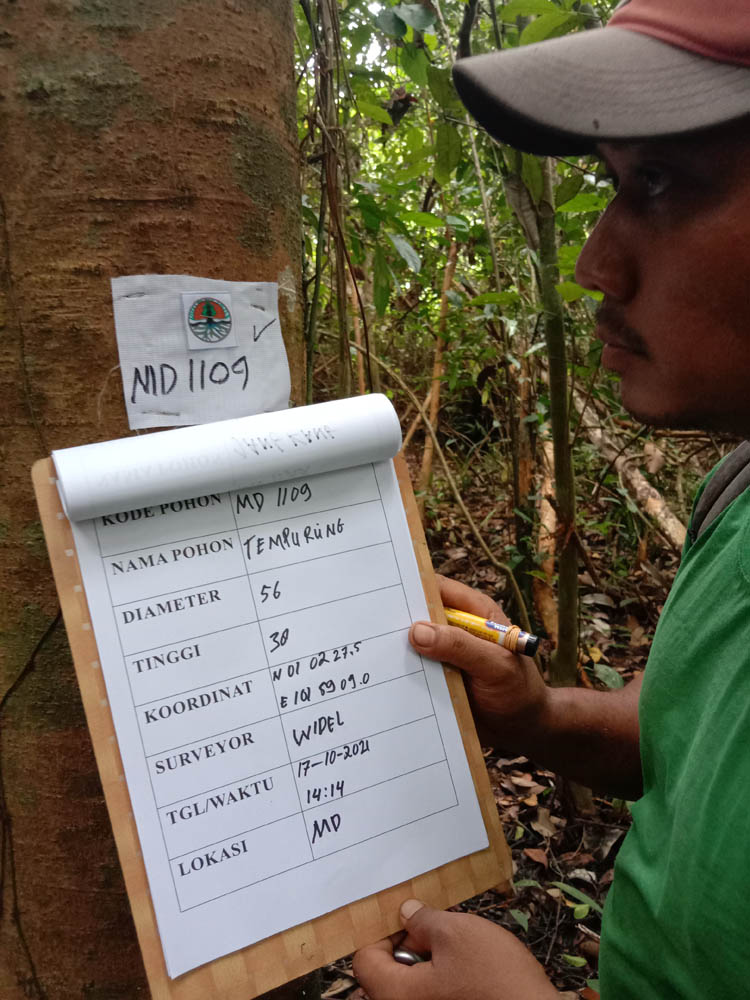 MD 1109
KODE POHON MD 1109
NAMA POHON TEMPURUNG
DIAMETER 56
TINGGI 38
KOORDINAT N 01 02 27.5
E 101 59 09.0
SURVEYOR WIDEL
TGL/WAKTU 17-10-2021
14:14
LOKASI MD